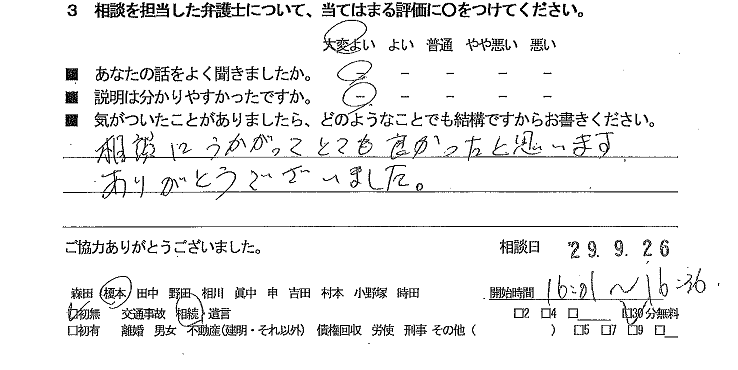 3 相談を担当した弁護士について、当てはまる評価に○をつけてください。
大変よい よい 普通 やや悪い 悪い
■ あなたの話をよく聞きましたか。 − − − − −
■ 説明は分かりやすかったですか。 − − − − −
■ 気がついたことがありましたら、どのようなことでも結構ですからお書きください。
相談にうかがってとても良かったと思います
ありがとうございました。
ご協力ありがとうございました。 相談日 '29. 9. 26
森田 榎本 田中 野田 相川 眞中 申 吉田 村本 小野塚 時田 開始時間 16:01 〜 16:36.
□初無 交通事故 相続 遺言 □2 □4 □ □30分無料
□初有 離婚 男女 不動産(建明・それ以外) 債権回収 労使 刑事 その他 ( ) □5 □7 □9 □